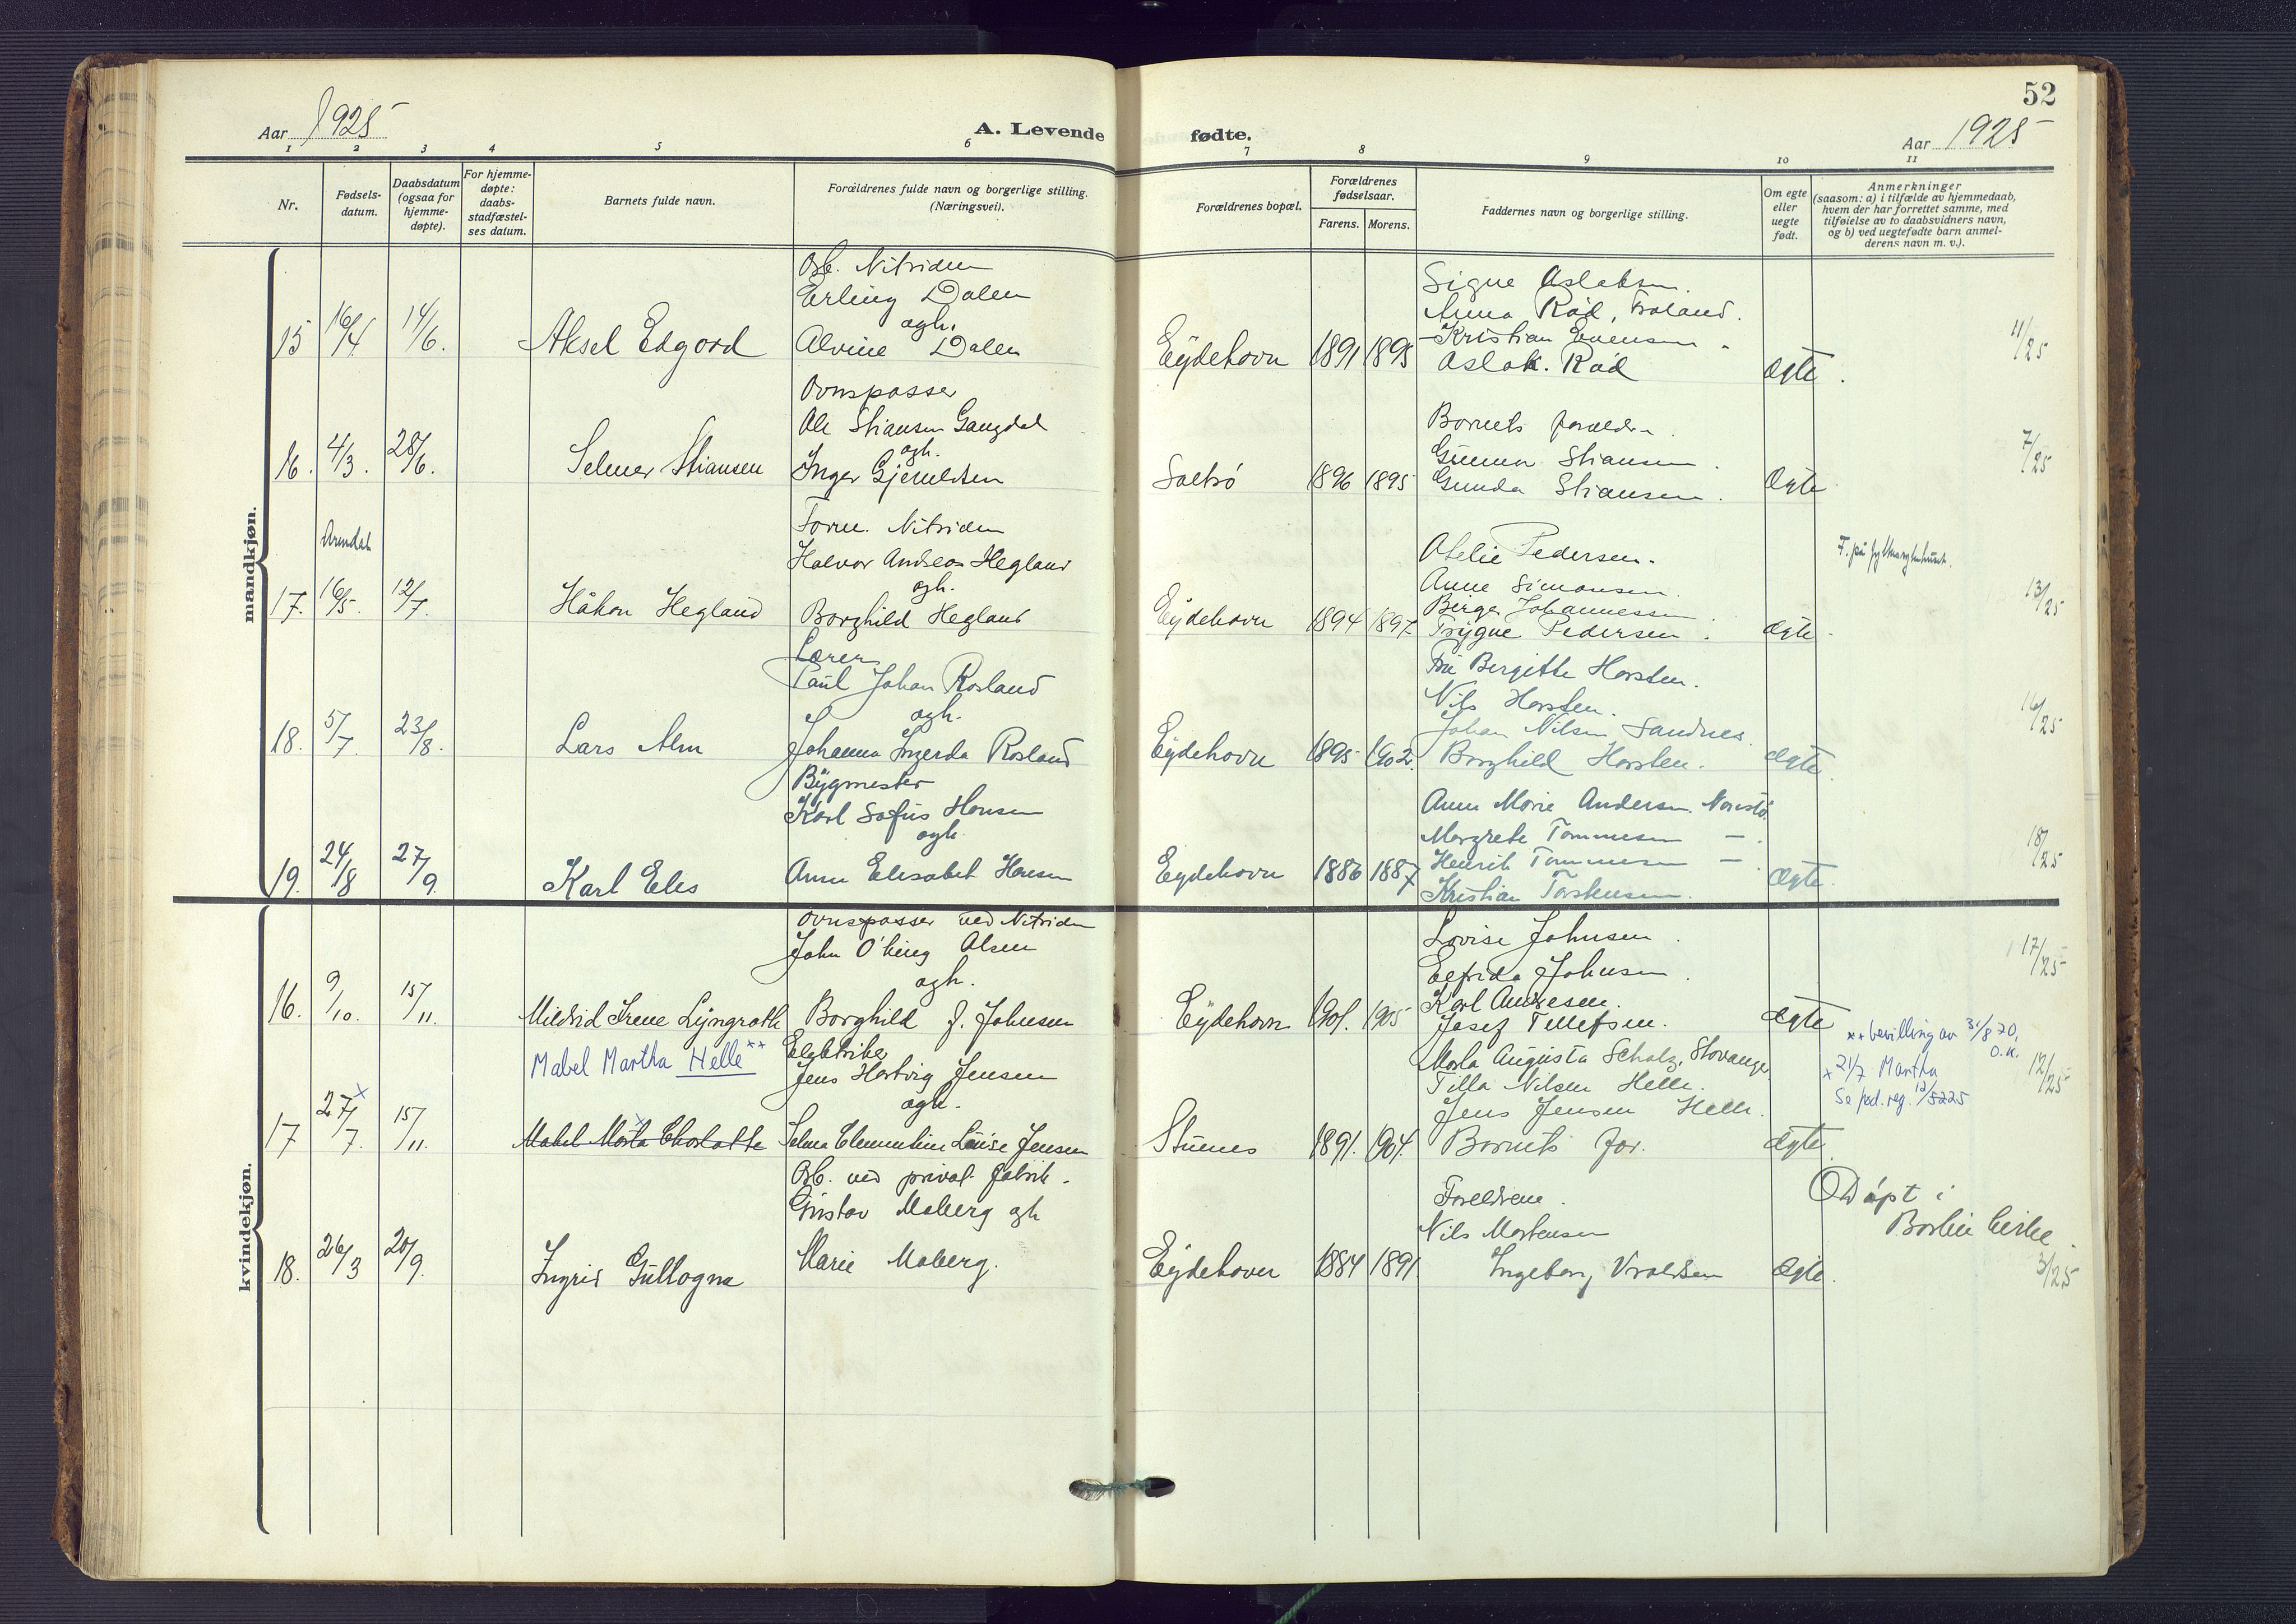 52
Aar 1925
A. Levende fødte.
Aar 1925
1 2 3 4 5 6 7 8 9 10 11
Nr.
Fødsels-
datum.
Daabsdatum
(ogsaa for
hjemme-
døpte).
For hjemme-
døpte:
daabs-
stadfæstel-
ses datum.
Barnets fulde navn.
Forældrenes fulde navn og borgerlige stilling.
(Næringsvei).
Forældrenes bopæl.
Forældrenes
fødselsaar.
Farens. Morens.
Faddernes navn og borgerlige stilling.
Om egte
eller
uegte
født.
Anmerkninger
(saasom: a) i tilfælde av hjemmedaab,
hvem der har forrettet samme, med
tilføielse av to daabsvidners navn,
og b) ved uegtefødte barn anmel-
derens navn m. v.).
mandkjøn.
15 16/4 14/6. Aksel Edgard
Arb. Nitriden
Erling Dalen
agh.
Alvine Dalen
Eydehavn 1891 1895
Signe Aslaksen.
Anna Råd, Froland.
Kristian Evensen "
Aslak. Råd
Ægte.
11/25
16. 4/3. 28/6. Selmer Stiansen
Ovnspasser
Ole Stiansen Gangdal
agh.
Inger Gjeruldsen
Saltrö 1896 1895
Barnets forældre.
Gunnar Stiansen.
Gunda Stiansen.
Ægte
7/25
Arendal
17. 16/5. 12/7. Håkon Hegland
Form. Nitriden
Halvor Andreas Hegland
agh.
Borghild Hegland
Eydehavn 1894 1897.
Otelie Pedersen.
Anne Simonsen.
Birger Johannessen.
Trygve Pedersen.
Ægte.
F. på
13/25
18. 5/7. 23/8. Lars Alm
Lærer
Paul Johan Rosland
agh.
Johanna Ingerda Rosland
Eydehavn 1895 1902.
Fru Bergitte Horsten.
Nils Horsten.
Johan Nilsen Sandnes.
Borghild Horsten.
Ægte.
16/25
19. 24/8 27/9. Karl Elis
Bygmester
Karl Sofus Hansen
agh
Anna Elisabet Hansen
Eydehavn 1886 1887
Anna Marie Andersen. Narestö.
Margrete Tommesen —.
Henrik Tommesen —
Kristian Torstensen.
Ægte.
18/25
kvindekjøn.
16. 9/10. 15/11. Mildrid Irene Lyngroth
Ovnspasser ved Nitriden
John O'hing Alsen
agh.
Borghild J. Johnsen
Eydehavn 1901. 1905
Lovise Johnsen.
Elfrida Johnsen.
Karl Andresen.
Josef Tellefsen.
Ægte
17/25
Mabel Martha Helle xx
17 27/7. x 15/11. Mabel Marta Charlotte
Elektriker
Jens Hartvig Jensen
agh.
Selma Clementine Lovise Jensen
Stuenes 1891. 1904.
Marta Augusta Scholz, Stavanger.
Tilla Nilsen Helle.
Jens Jensen Helle.
Barnets for.
Ægte.
xx bevilling av 31/8 20,
O.K.
x 21/7 Martha
Se fød. reg. 12/5225
12/25
18. 26/3 20/9. Ingrid Gullogna
Arb. ved privat fabrik.
Gustav Moberg agh
Marie Moberg.
Eydehaven 1884 1891.
Foreldrene.
Nils Mortensen
Ingeborg Vroldsen
Ægte.
Døpt i
Barbu kirke.
3/25